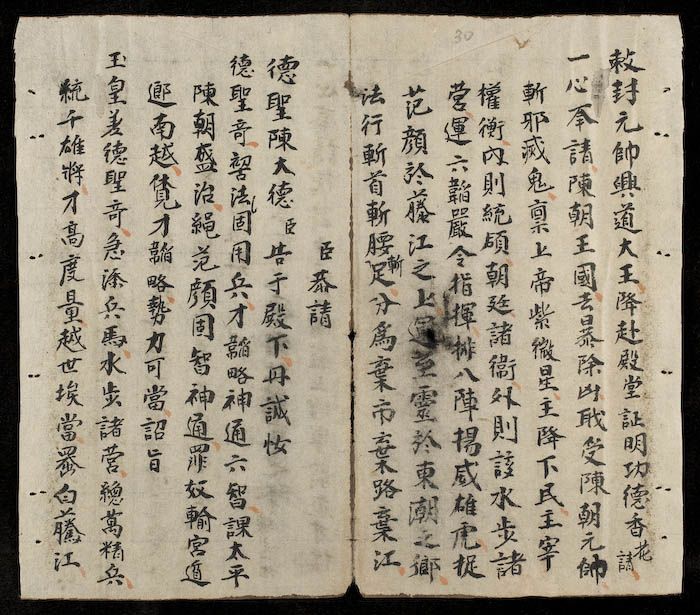 30
敕封元帥興道大王降赴殿堂証明功德香花請
一心奉請陳朝王國去暴除凶敢受陳朝元帥
斬邪滅鬼稟上帝紫微星主降下民主宰
權衡內則統碩朝廷諸衛外則該水步諸
營運六韜嚴令指揮排八陣揚威雄虎捉
范顏於藤江之上 至靈於東潮之鄉
法行斬首斬腰斬足分為棄市棄路棄江
臣恭請
德聖陳大德臣告于殿下丹誠忟
德聖奇 法固用兵才韜略神通六智課太平
陳朝盛治繩范顏固智神通罪奴輸宮道
鄉南越覺才韜略勢力可當詔旨
玉皇差德聖奇急添兵馬水步諸營總萬精兵
統千雄將才高度量越世埃當羅白藤江